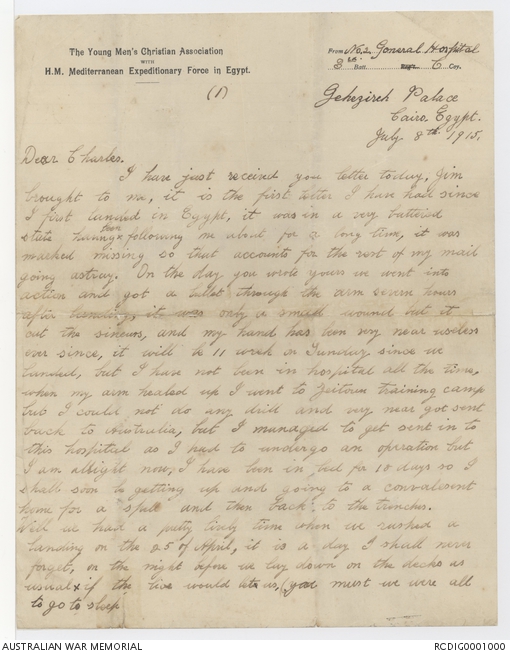 The Young Men's Christian Association
WITH
H.M. Mediterranean Expeditionary Force in Egypt.
From No. 2. General Hospital
3rd. Batt. Regt. C Coy.
(1)
Gehezireh Palace
Cairo. Egypt.
July 8th. 1915.
Dear Charles.
I have just received you letter today, Jim
brought to me, it is the first letter I have had since
I first landed in Egypt, it was in a very battered
state having been following me about for a long time, it was
marked missing so that accounts for the rest of my mail
going astray. On the day you wrote yours we went into
action and got a bullet through the arm seven hours
after landing, it was only a small wound but it
cut the sinews, and my hand has ben very near useless
ever since, it will be 11 week on Sunday since we
landed, but I have not ben in hospital all the time,
when my arm healed up I went to Zeitoun training camp
but I could not do any drill and very near got sent
back to Australia, but I managed to get sent in to
this hospital as I had to undergo an operation but
I am allright now, I have ben in bed for 10 days so I
shall soon be getting up and going to a convalesent
home for a "spell" and then back to the trenches.
Well we had a pretty lively time when we rushed a
landing on the 25 of April, it is a day I shall never
forget, on the night before we lay down on the decks as
usual & if the lice would let us, must we were all
to go to sleep
AUSTRALIAN WAR MEMORIAL
RCDIG0001000